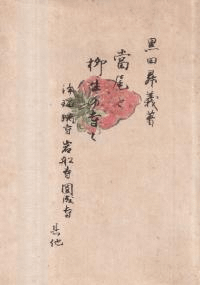 黒田曻義著
當尾と
柳生の寺々
浄瑠璃寺岩船寺圓成寺
其他